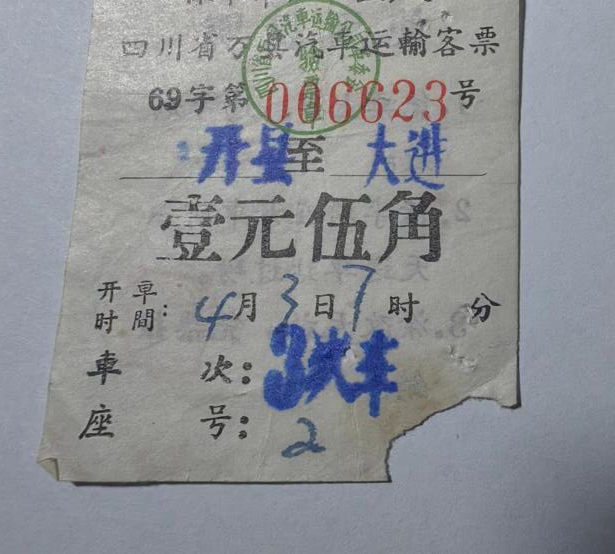 四川省万县汽車运輸客票
69字第 006623 号
开县 至 大进
壹元伍角
开車时間: 4月3日7时 分
車 次: 3次车
座 号: 2